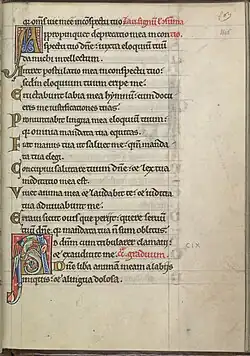 quoniam omnes vie mee in conspectu tuo
Appropinquet deprecatio mea in con
spectu tuo dñe: iuxta eloquium tuum
da michi intellectum.
Intret postulatio mea in conspectu tuo:
scdm eloquium tuum eripe me.
Eructabunt labia mea hymnum: cum docu
eris me iustificationes tuas.
Pronuntiabit lingua mea eloquium tuum:
quia omnia mandata tua equitas.
Fiat manus tua ut saluet me: qm̃ manda
ta tua elegi.
Concupiui salutare tuum dñe: et lex tua
meditatio mea est.
Uiuet anima mea et laudabit te: et iudicia
tua adiuuabunt me.
Erraui sicut ouis que perijt: quere seruũ
tuũ dñe, qa mandata tua ñ sum oblitus.
Ad dnm̃ cum tribularer clamaui:
et exaudiuit me. graduum.
CIX
Dñe libera animã meam a labijs
iniquis: et a lingua dolosa.